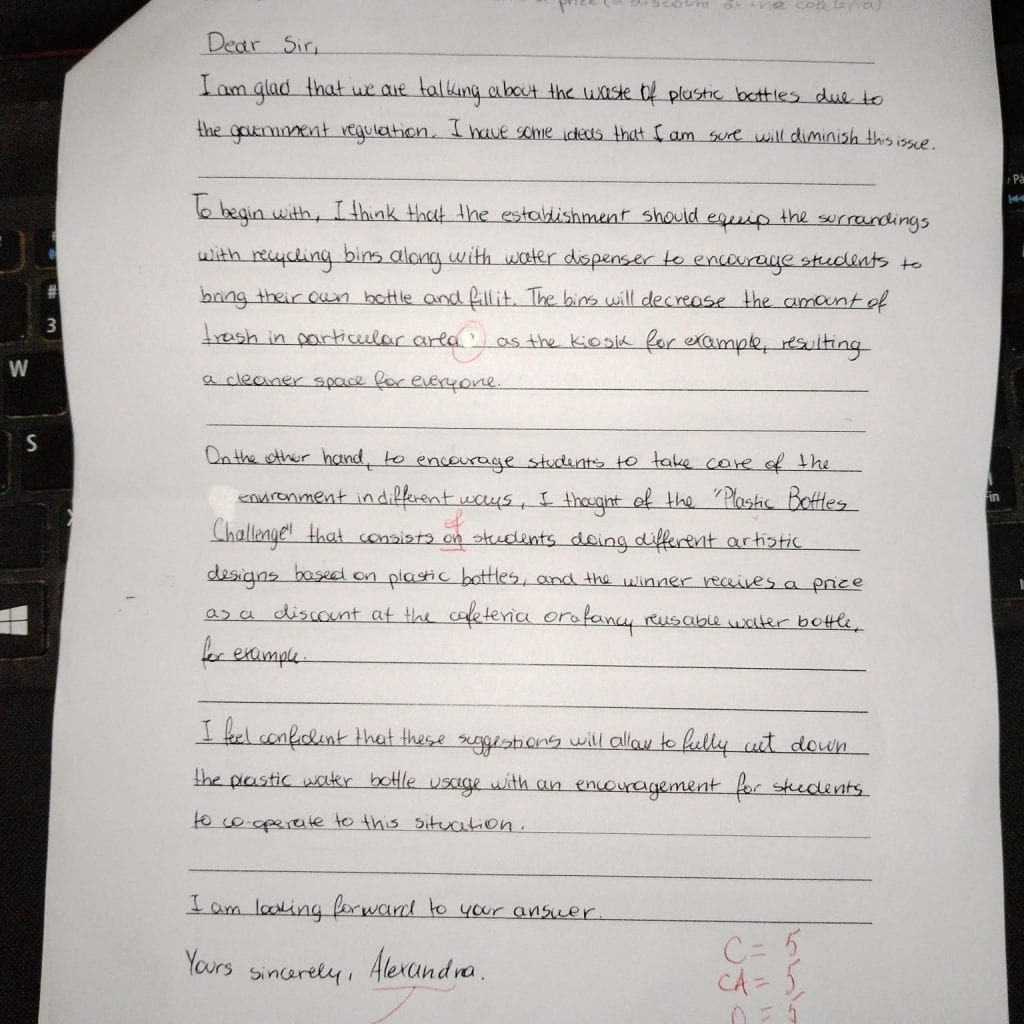 price (a discount at the cafeteria)
Dear Sir,
I am glad that we are talking about the waste of plastic bottles due to
the government regulation. I have some ideas that I am sure will diminish this issue.
To begin with, I think that the establishment should equip the surrandings
with recycling bins along with water dispenser to encourage students to
bring their own bottle and fill it. The bins will decrease the amount of
trash in particular area, as the kiosk for example, resulting
a cleaner space for everyone.
On the other hand, to encourage students to take care of the
environment in different ways, I thought of the "Plastic Bottles
of
Challenge" that consists on students doing different artistic
designs based on plastic bottles, and the winner receives a price
as a discount at the cafeteria or a fancy reusable water bottle,
for example.
I feel confident that these suggestions will allow to fully cut down
the plastic water bottle usage with an encouragement for students
to co-operate to this situation.
I am looking forward to your answer.
Yours sincerely, Alexandra.
C = 5
CA = 5
O = 5
W
S
#
3